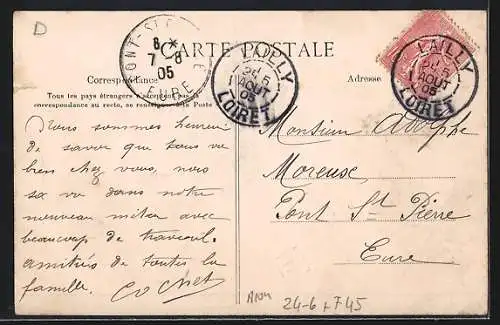 D
CARTE POSTALE
PONT-ST-PIERRE
8
7 - 8
05
EURE
LAILLY
24 5
1 AOUT
05
LOIRET
LAILLY
24 5
1 AOUT
05
LOIRET
Correspondance
Adresse
Tous les pays étrangers n'acceptent pas la
correspondance au recto, se renseigner à la Poste
Nous sommes heureux
de savoir que tous va
bien chez vous, nous
sa va dans notre
nouveau métier avec
beaucoup de travail.
amitiés de toutes la
famille.
Cochet
Monsieur Adolphe
Moreuse
Pont St Pierre
Eure
24-6+745